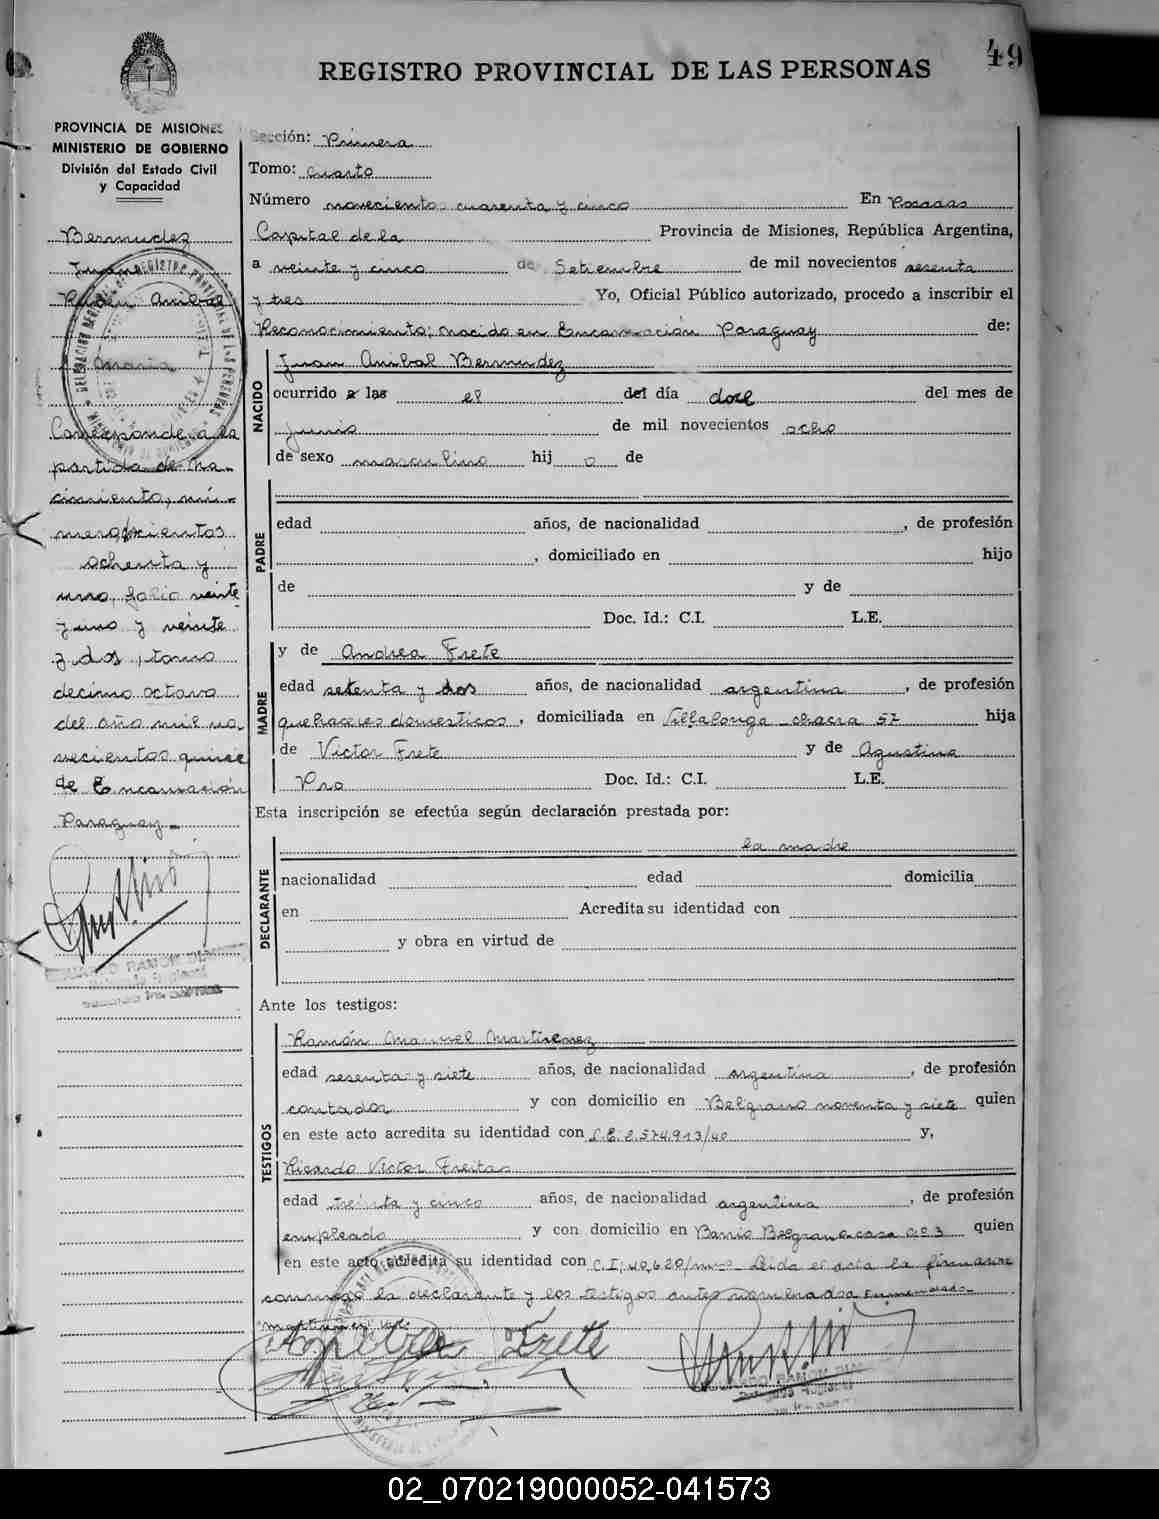 49
REGISTRO PROVINCIAL DE LAS PERSONAS
PROVINCIA DE MISIONES
MINISTERIO DE GOBIERNO
División del Estado Civil
y Capacidad
Bermudez
Juan
Anibal
Maria
Corresponde a la
partida de na-
cimiento, nú-
mero
ochenta y
uno, folio veinte
y uno y veinte
y dos, tomo
décimo octavo
del año mil no-
vecientos quince
de Encarnación
Paraguay-
Sección: Primera
Tomo: cuarto
Número novecientos cuarenta y cinco En Posadas
Capital de la Provincia de Misiones, República Argentina,
a veinte y cinco de Setiembre de mil novecientos sesenta
y tres Yo, Oficial Público autorizado, procedo a inscribir el
Reconocimiento; nacido en Encarnación Paraguay de:
NACIDO
Juan Anibal Bermudez
ocurrido a las el del día doce del mes de
Junio de mil novecientos ocho
de sexo masculino hij o de
PADRE
edad años, de nacionalidad , de profesión
, domiciliado en hijo
de y de
Doc. Id.: C.I. L.E.
MADRE
y de Andrea Frete
edad setenta y dos años, de nacionalidad argentina, de profesión
quehaceres domesticos, domiciliada en Villalonga - chacra 57 hija
de Victor Frete y de Agustina
Pro Doc. Id.: C.I. L.E.
Esta inscripción se efectúa según declaración prestada por:
DECLARANTE
la madre
nacionalidad edad domicilia
en Acredita su identidad con
y obra en virtud de
Ante los testigos:
TESTIGOS
Ramón Manuel Martinenez
edad sesenta y siete años, de nacionalidad argentina, de profesión
contador y con domicilio en Belgrano noventa y siete quien
en este acto acredita su identidad con L.E. 2.574.913/40 y,
Ricardo Victor Freitas
edad treinta y cinco años, de nacionalidad argentina, de profesión
empleado y con domicilio en Barrio Belgrano casa nº 3 quien
en este acto acredita su identidad con C.I. 40.620/ Leida el acta la firmaron
conmigo la declarante y los testigos antes nombrados Enmendado-
Frete
02_070219000052-041573